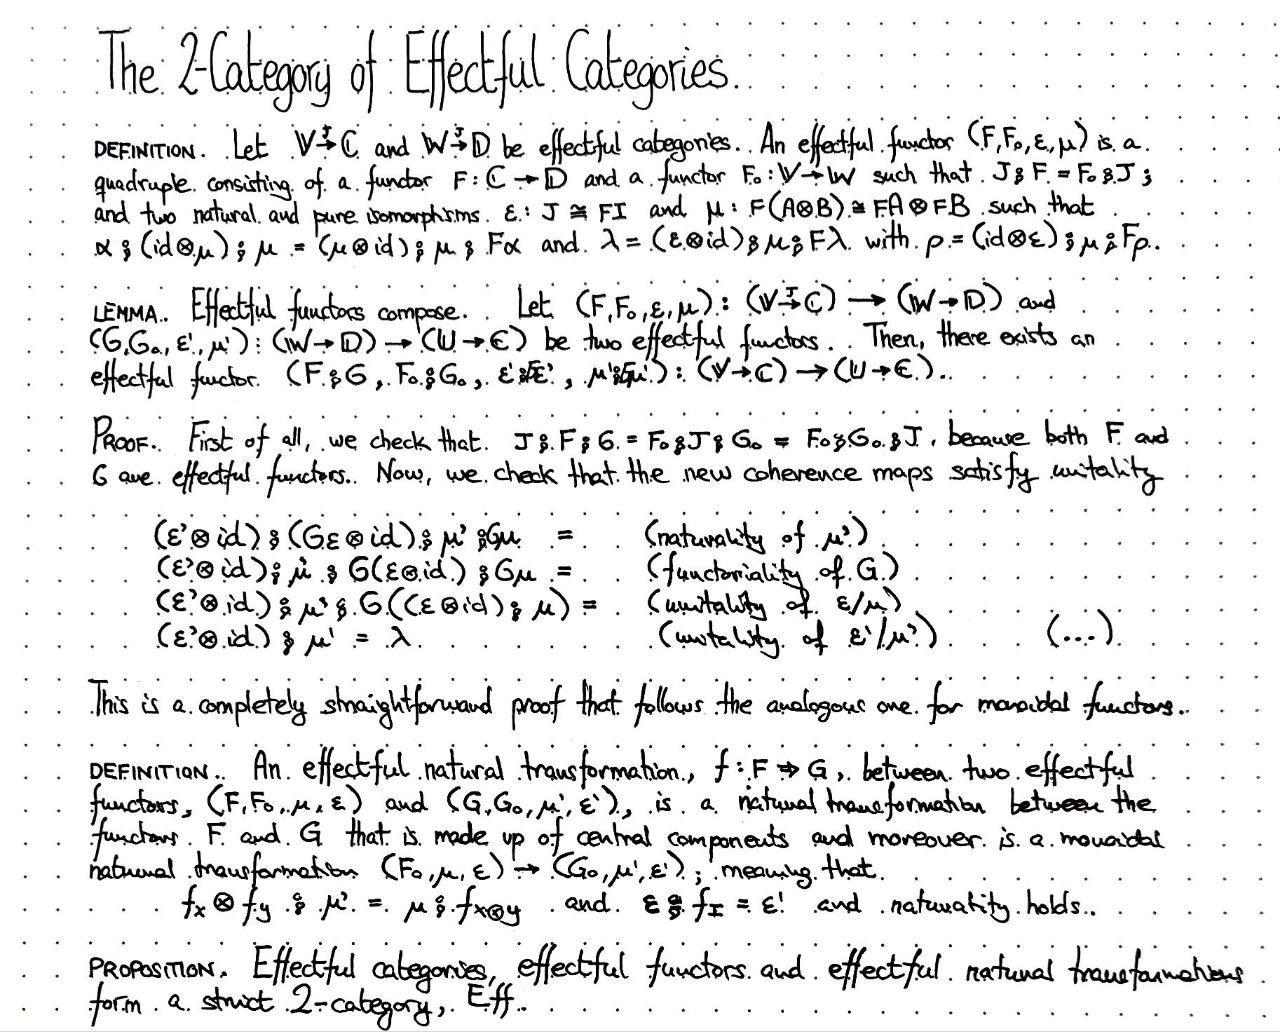 The 2-Category of Effectful Categories.
DEFINITION. Let 𝕍 →ᴶ ℂ and 𝕎 →ᴶ 𝔻 be effectful categories. An effectful functor (F, F₀, ε, μ) is a
quadruple consisting of a functor F : ℂ → 𝔻 and a functor F₀ : 𝕍 → 𝕎 such that J ⨟ F = F₀ ⨟ J ;
and two natural and pure isomorphisms. ε : J ≅ FI and μ : F(A⊗B) ≅ FA ⊗ FB such that
α ⨟ (id⊗μ) ⨟ μ = (μ⊗id) ⨟ μ ⨟ Fα and λ = (ε⊗id) ⨟ μ ⨟ Fλ with ρ = (id⊗ε) ⨟ μ ⨟ Fρ.
LEMMA. Effectful functors compose. Let (F, F₀, ε, μ) : (𝕍 →ᴶ ℂ) → (𝕎 → 𝔻) and
(G, G₀, ε', μ') : (𝕎 → 𝔻) → (𝕌 → 𝔼) be two effectful functors. Then, there exists an
effectful functor (F ⨟ G, F₀ ⨟ G₀, , ) : (𝕍 → ℂ) → (𝕌 → 𝔼).
PROOF. First of all, we check that J ⨟ F ⨟ G = F₀ ⨟ J ⨟ G₀ = F₀ ⨟ G₀ ⨟ J, because both F and
G are effectful functors. Now, we check that the new coherence maps satisfy unitality
(ε'⊗id) ⨟ (Gε⊗id) ⨟ μ' ⨟ Gμ = (naturality of μ')
(ε'⊗id) ⨟ μ' ⨟ G(ε⊗id) ⨟ Gμ = (functoriality of G)
(ε'⊗id) ⨟ μ' ⨟ G((ε⊗id) ⨟ μ) = (unitality of ε/μ)
(ε'⊗id) ⨟ μ' = λ (unitality of ε'/μ') (...)
This is a completely straightforward proof that follows the analogous one for monoidal functors.
DEFINITION. An effectful natural transformation, f : F ⇒ G, between two effectful
functors, (F, F₀, μ, ε) and (G, G₀, μ', ε'), is a natural transformation between the
functors F and G that is made up of central components and moreover is a monoidal
natural transformation (F₀, μ, ε) → (G₀, μ', ε'); meaning that
fₓ ⊗ f_y ⨟ μ' = μ ⨟ f_{x⊗y} and ε ⨟ f_I = ε' and naturality holds.
PROPOSITION. Effectful categories, effectful functors and effectful natural transformations
form a strict 2-category, Eff.